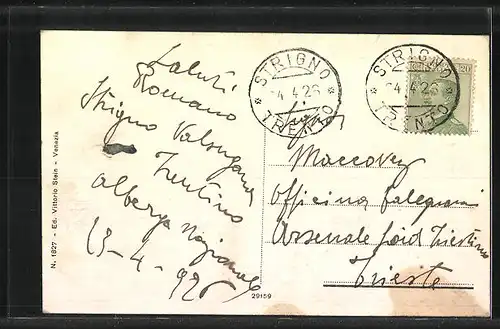 Saluti
Romano
Strigno Valsugana
Trentino
albergo Nazionale
13-4-926
STRIGNO
TRENTO
-4.4.26
STRIGNO
TRENTO
4.4.26
20
Signor
Maccovez
Officina falegnami
Arsenale Triestino
Trieste
N. 1827 - Ed. Vittorio Stein - Venezia
29159